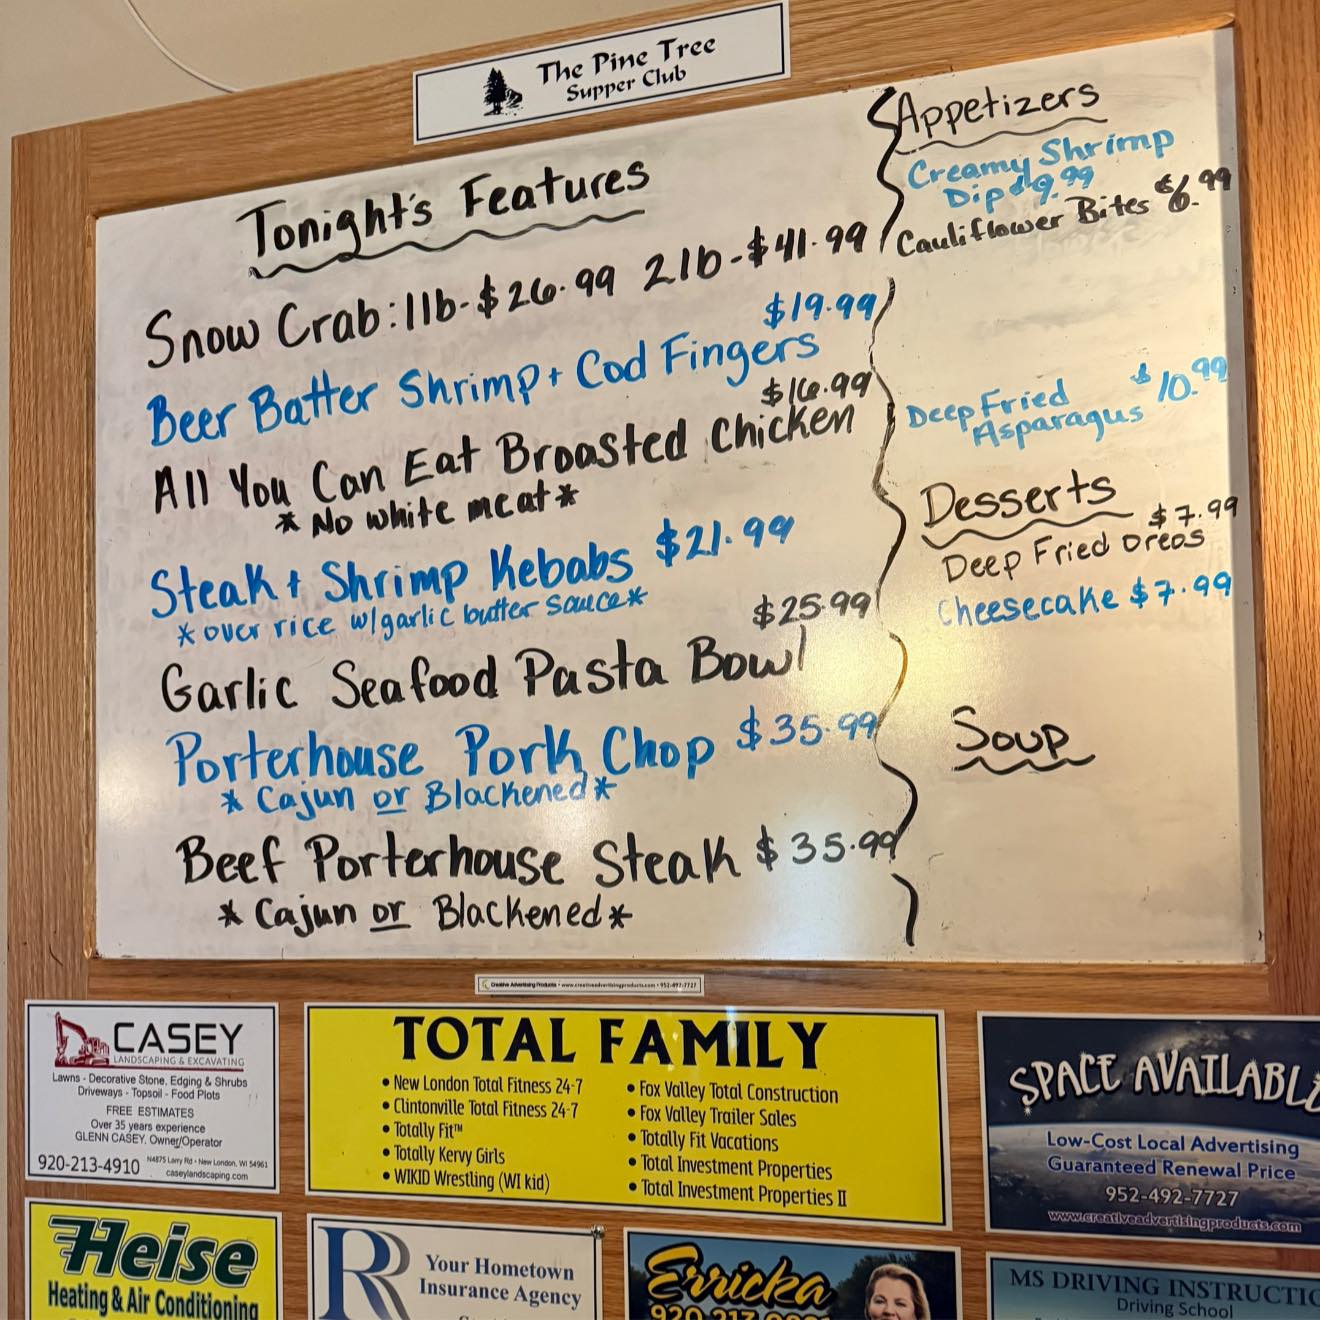 The Pine Tree
Supper Club
Tonight's Features
Snow Crab: 1lb-$26.99 2lb-$41.99
$19.99
Beer Batter Shrimp + Cod Fingers
$16.99
All You Can Eat Broasted Chicken
*No white meat*
Steak + Shrimp Kebabs $21.99
*over rice w/garlic butter sauce*
$25.99
Garlic Seafood Pasta Bowl
Porterhouse Pork Chop $35.99
*Cajun or Blackened*
Beef Porterhouse Steak $35.99
*Cajun or Blackened*
Appetizers
Creamy Shrimp
Dip $9.99
Cauliflower Bites $6.99
Deep Fried $10.99
Asparagus
Desserts
$7.99
Deep Fried Oreos
Cheesecake $7.99
Soup
Creative Advertising Products • www.creativeadvertisingproducts.com • 952-492-7727
CASEY
LANDSCAPING & EXCAVATING
Lawns - Decorative Stone, Edging & Shrubs
Driveways - Topsoil - Food Plots
FREE ESTIMATES
Over 35 years experience
GLENN CASEY, Owner/Operator
920-213-4910
N4875 Larry Rd • New London, WI 54961
caseylandscaping.com
TOTAL FAMILY
• New London Total Fitness 24-7
• Clintonville Total Fitness 24-7
• Totally Fit™
• Totally Kervy Girls
• WIKID Wrestling (WI kid)
• Fox Valley Total Construction
• Fox Valley Trailer Sales
• Totally Fit Vacations
• Total Investment Properties
• Total Investment Properties II
SPACE AVAILABLE
Low-Cost Local Advertising
Guaranteed Renewal Price
952-492-7727
www.creativeadvertisingproducts.com
Heise
Heating & Air Conditioning
RR
Your Hometown
Insurance Agency
Erricka
MS DRIVING INSTRUCTIO
Driving School